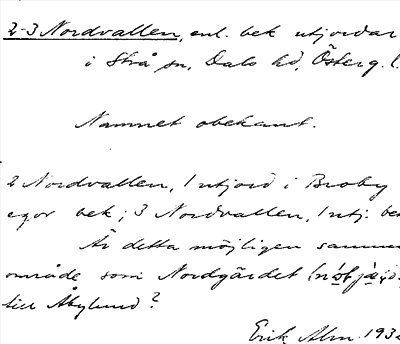 2-3 Nordvallen, enl. bek utjordar
i Strå sn, Dals hd, Österg. l.
Namnet obekant.
2 Nordvallen, 1 utjord i Broby
egor bek; 3 Nordvallen, 1 utj. bek
Är detta möjligen samma
område som Nordgärdet
till Åbylund?
Erik Alm. 193